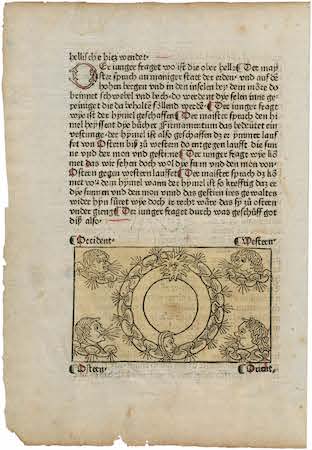 hellische hicz werdet·
Er iunger fraget wo ist die ober helle· Der may
ster sprach an maniger statt der erden· vnd auf dē
hohen bergen vnd in den inseln bey dem möre do
brinnet schwebel vnd bech· do werdent die selen inne ge
peiniget die da behaltē söllend werdē· Der iunger fragt
wye ist der hymel geschaffen· Der maister sprach den hi
mel heyssent die bücher Firmamentum das bedeütet ein
vestunge· der hymel ist also geschaffen dz er ymmer lauf
fet von Ostern biß zů western do entgegen lauffet die sun
ne vnd der mon vnd gestirn· Der iunger fragt wye kō
met das wir sehen doch wol die sunn vnd den mon von
Ostern gegen western lauffen· Der maister sprach dz kō
met võ dem hymel wann der hymel ist so krefftig das er
die sunnen vnd den mon vnnd das gestirn ires gewaltes
wider hyn füret wye doch ir recht wäre das sy zů ostern
vnder gieng· Der iunger fraget durch was geschüff got
diß also·
Occident· Western·
Ostern· Orient·